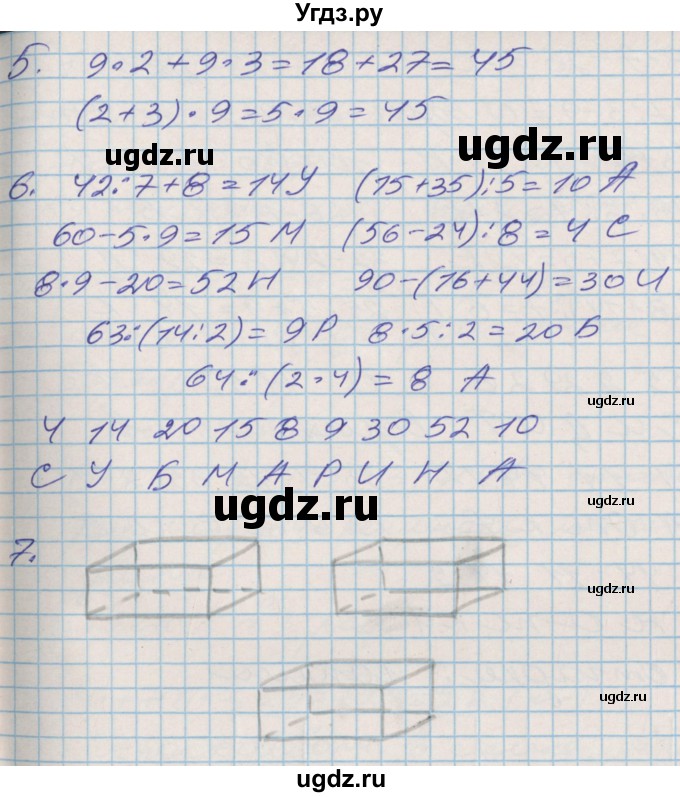 Угдз.ру
5. 9·2+9·3=18+27=45
(2+3)·9=5·9=45
ugdz.ru
ugdz.ru
6. 42:7+8=14У (15+35):5=10 А
60-5·9=15 М (56-24):8=4 С
8·9-20=52Н 90-(16+44)=30И
63:(14:2)=9Р 8·5:2=20 Б
64:(2·4)=8 А
ugdz.ru
4 14 20 15 8 9 30 52 10
С У Б М А Р И Н А
ugdz.ru
ugdz.ru
7.
ugdz.ru
ugdz.ru
ugdz.ru